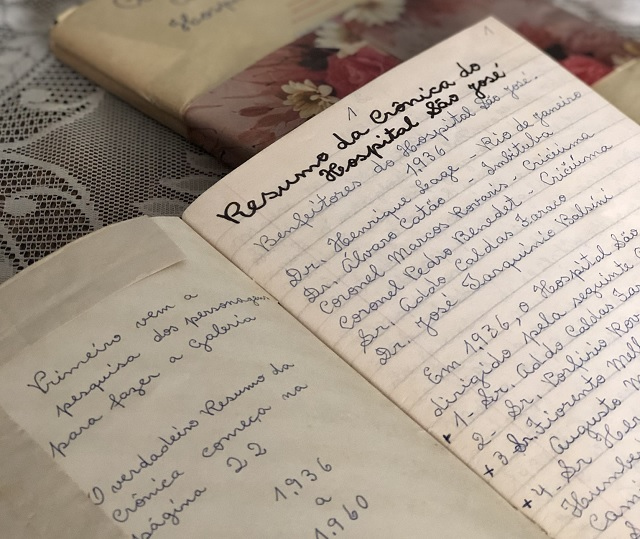 Hospital
Primeiro vem a
pesquisa dos personagens
para fazer a Galeria
O verdadeiro Resumo da
Crônica começa na
página 22
1.936
a
1.960
1
1
Resumo da Crônica do
Hospital São José
Benfeitores do Hospital São José.
1936
Dr. Henrique Lage - Rio de Janeiro
Dr. Álvaro Catão - Imbituba
Coronel Marcos Rovaris - Criciúma
Coronel Pedro Benedet - Criciúma
Sr. Addo Caldas Faraco
Dr. José Tarquinio Balsini
Em 1936, o Hospital São
dirigido pela seguinte
+ 1- Sr. Addo Caldas
2- Sr. Porfirio
+ 3- Sr. Fiorento
Augusto
+ 4- Sr.